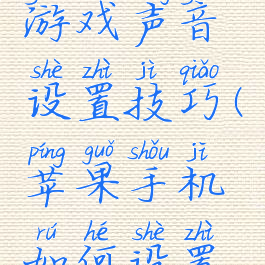 游戏声音
shè zhì jì qiǎo
设置技巧(
píng guǒ shǒu jī
苹果手机
rú hé shè zhì
如何设置